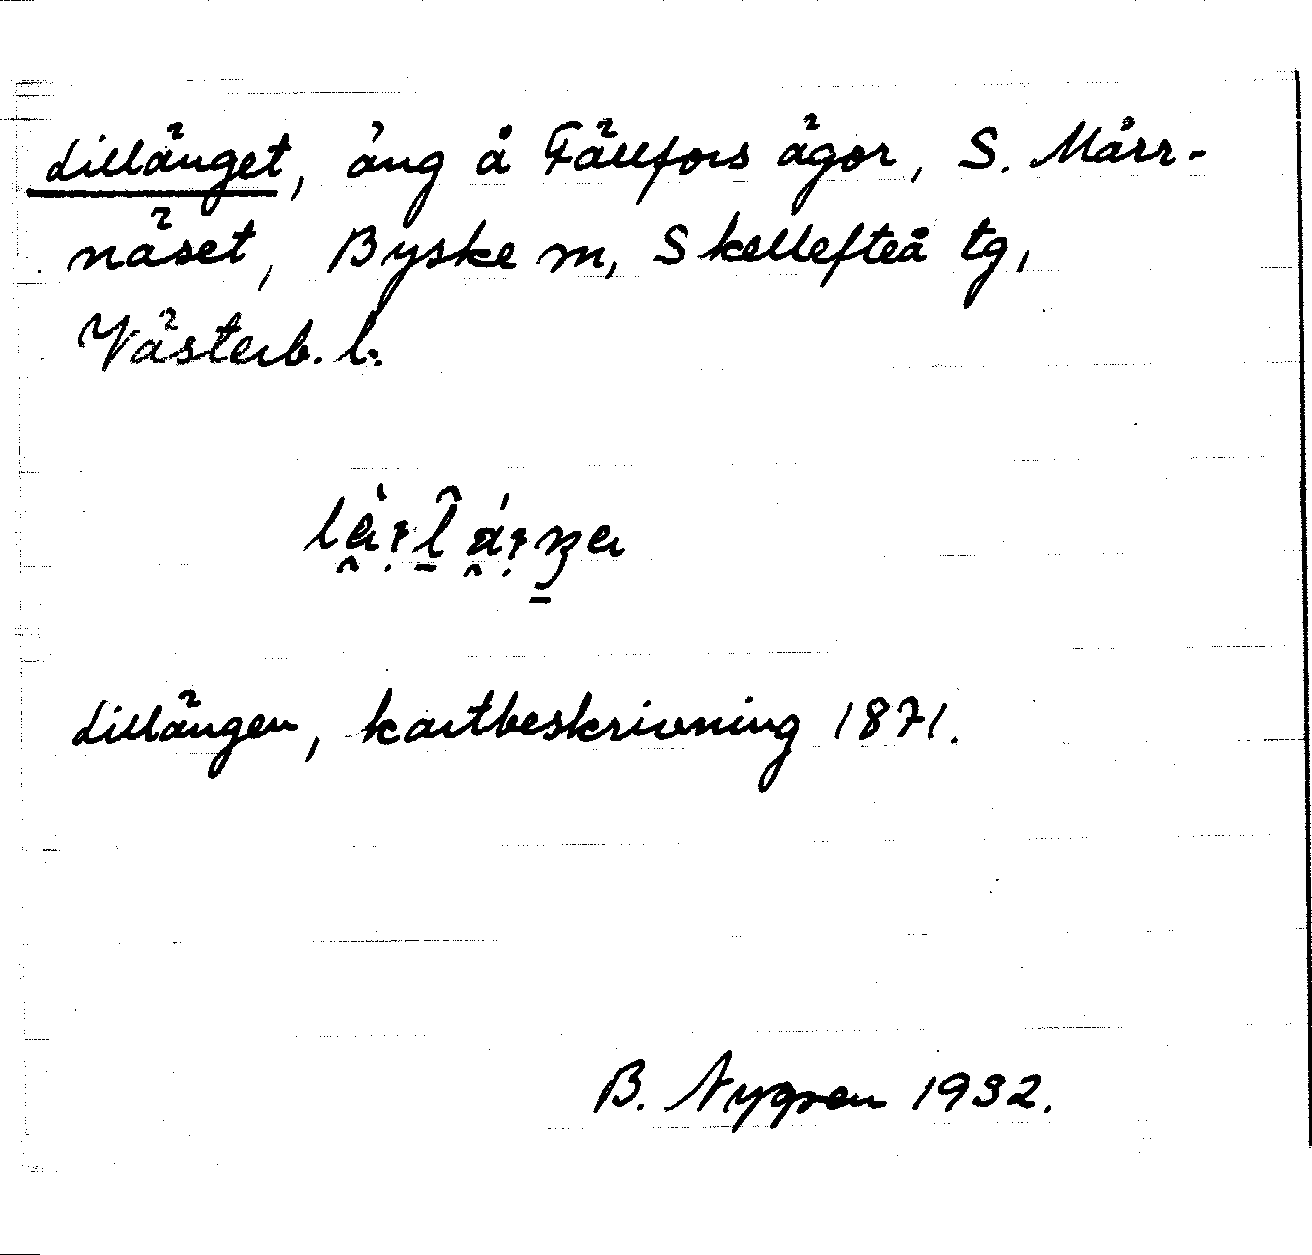 Lillänget, äng å Fällfors ägor, S. Mårr-
näset, Byske sn, Skellefteå tg,
Västerb. l.
Lillängen, kartbeskrivning 1871.
B. Nygren 1932.